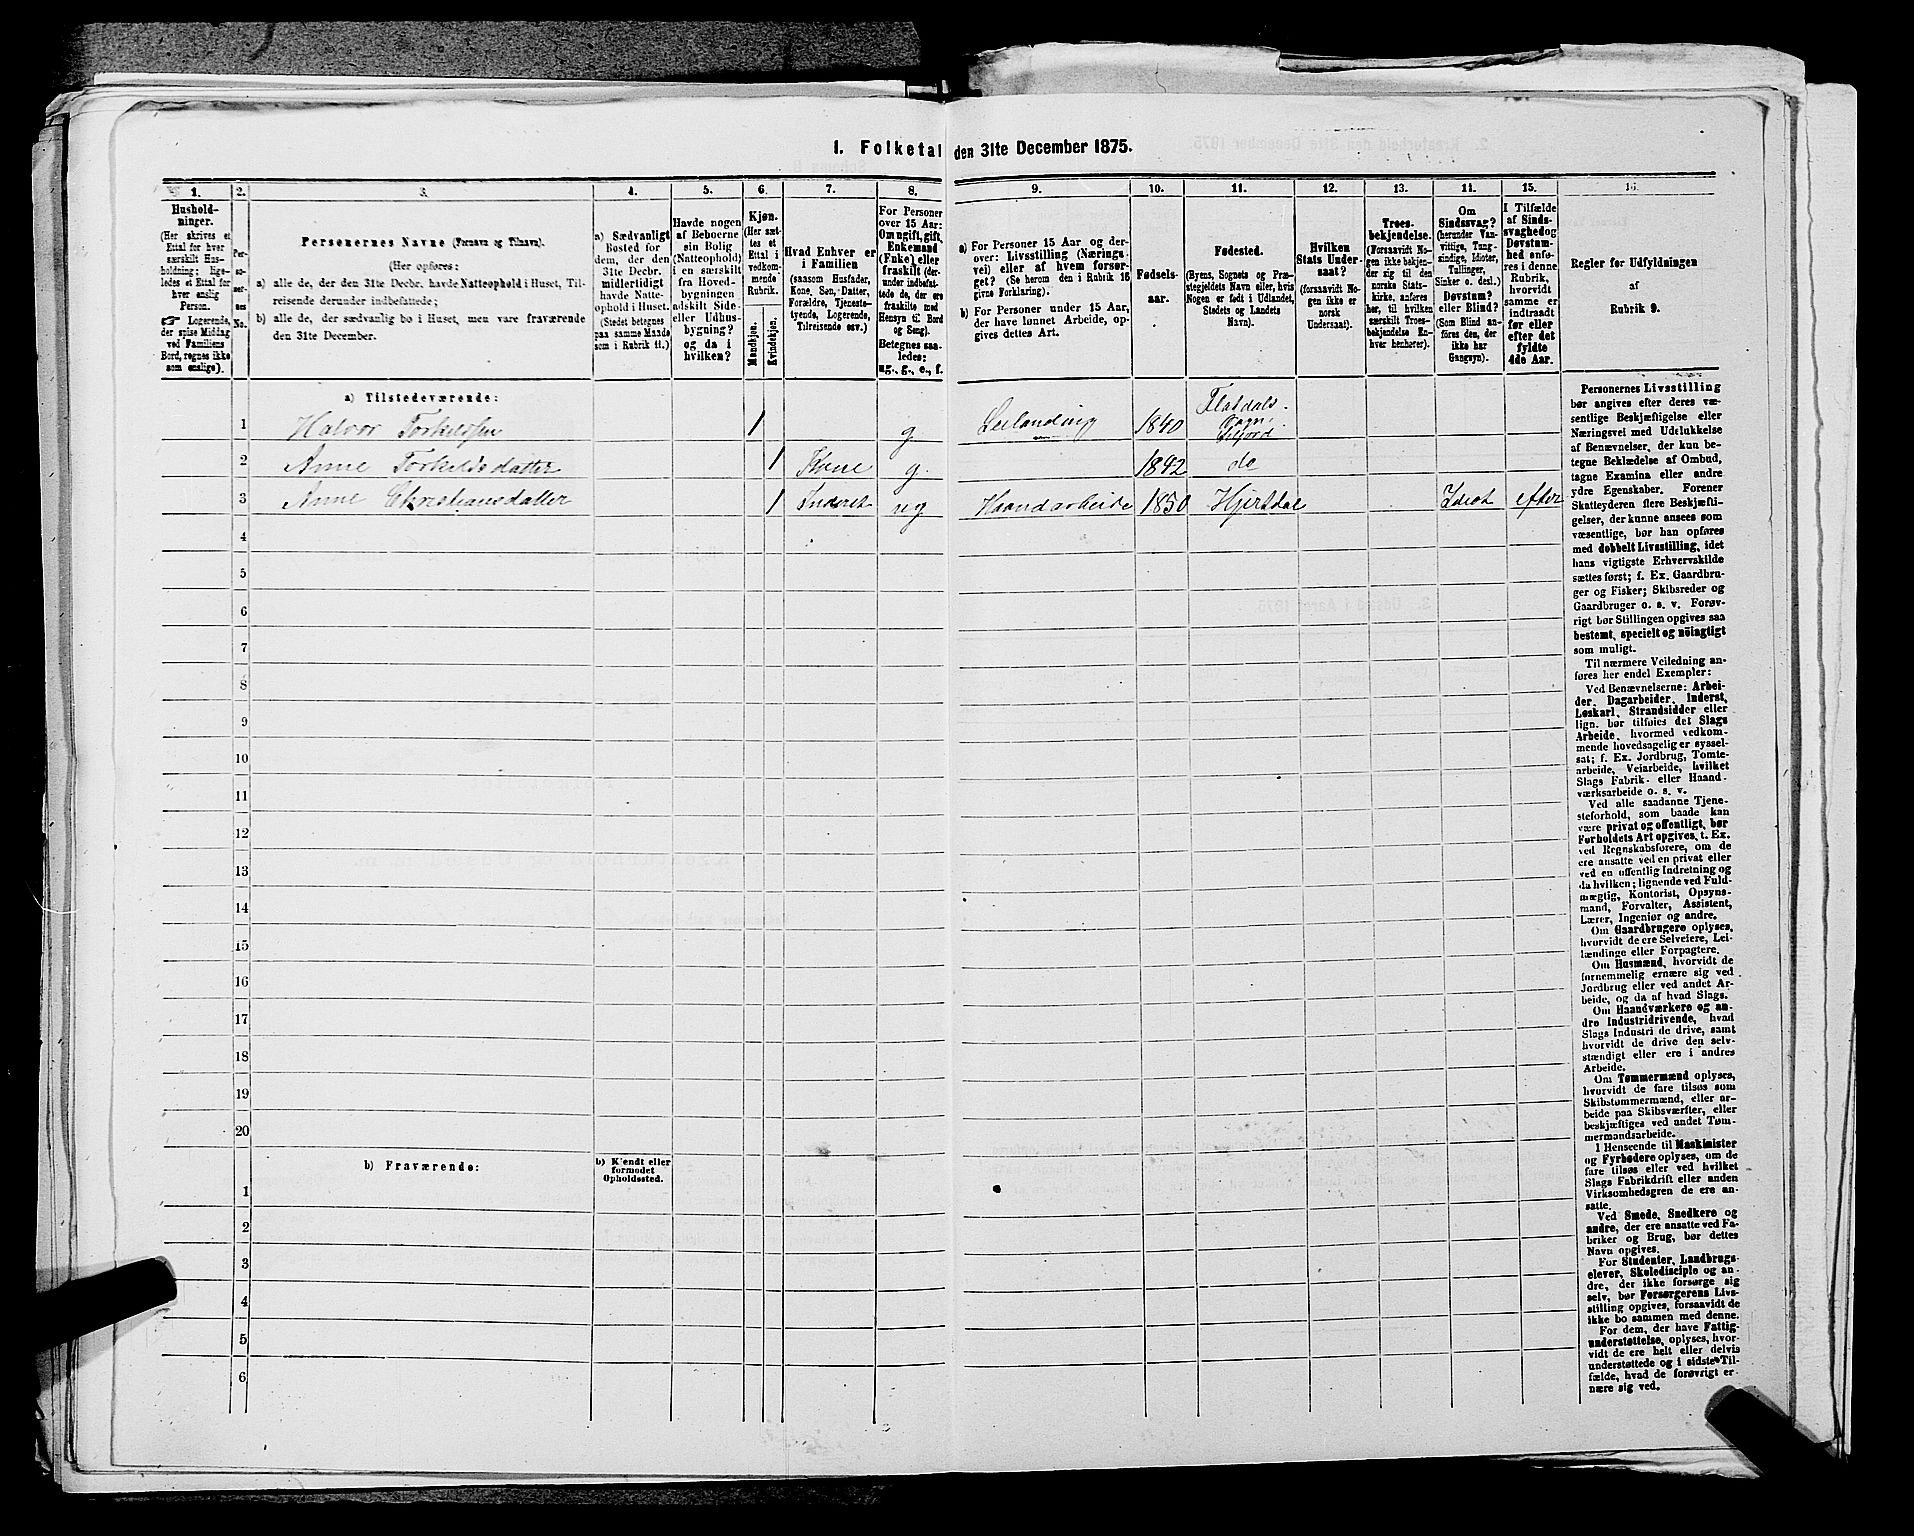 1. Folketal den 31te December 1875.
1.
2.
3.
4.
5.
6.
7.
8.
9.
10.
11.
12.
13.
14.
15.
16.
Hushold-
ninger.
(Her skrives et
Ettal for hver
særskilt Hus-
holdning; lige-
ledes et Ettal for
hver enslig
Person.
☞ Logerende,
der spise Middag
ved Familiens
Bord, regnes ikke
som enslige).
Per-
so-
ner-
nes
No.
Personernes Navne (Fornavn og Tilnavn).
(Her opføres:
a) alle de, der den 31te Decbr. havde Natteophold i Huset, Til-
reisende derunder indbefattede;
b) alle de, der sædvanlig bo i Huset, men vare fraværende
den 31te December.
a) Sædvanligt
Bosted for
dem, der den
31te Decbr.
midlertidigt
havde Natte-
ophold i Huset.
(Stedet betegnes
paa samme Maade
som i Rubrik 11.)
Havde nogen
af Beboerne
sin Bolig
(Natteophold)
i en særskilt
fra Hoved-
bygningen
adskilt Side-
eller Udhus-
bygning?
og da i
hvilken?
Kjøn.
(Her sæt-
tes et
Ettal i
vedkom-
mende
Rubrik.
Mandkjøn.
Kvindekjøn.
Hvad Enhver er
i Familien
(saasom Husfader,
Kone, Søn, Datter,
Forældre, Tjeneste-
tyende, Logerende,
Tilreisende osv.)
For Personer
over 15 Aar:
Om ugift, gift,
Enkemand
(Enke) eller
fraskilt (der-
under indbefat-
tede de, der ere
fraskilte med
Hensyn til Bord
og Seng).
Betegnes saa-
ledes:
ug., g., e., f.
a) For Personer 15 Aar og der-
over: Livsstilling (Nærings-
vei) eller af hvem forsør-
get? (Se herom den i Rubrik 16
givne Forklaring).
b) For Personer under 15 Aar,
der have lønnet Arbeide, op-
gives dettes Art.
Fødsels-
aar.
Fødested.
(Byens, Sognets og Præ-
stegjeldets Navn eller, hvis
Nogen er født i Udlandet,
Stedets og Landets
Navn).
Hvilken
Stats Under-
saat?
(forsaavidt No-
gen ikke er
norsk
Undersaat).
Troes-
bekjendelse.
(Forsaavidt No-
gen ikke bekjen-
der sig til den
norske Stats-
kirke, anføres
her, til hvilken
særskilt Troes-
bekjendelse En-
hver henhører).
Om
Sindssvag?
(herunder Van-
vittige, Tung-
sindige, Idioter,
Tullinger,
Sinker o. desl.)
Døvstum?
eller Blind?
(Som Blind an-
føres den, der
ikke har
Gangsyn).
I Tilfælde
af Sinds-
svaghed og
Døvstum-
hed anfø-
res i denne
Rubrik,
hvorvidt
samme er
indtraadt
før eller
efter det
fyldte
4de Aar.
Regler for Udfyldningen
af
Rubrik 9.
a) Tilstedeværende:
1 Halvor Torkildsen 1 g Leilænding 1840 Flatdals Sogn, Siljord
2 Anne Torkildsdatter 1 Kone g. 1842 do
3 Anne Christiansdatter 1 Inderst ug Haandarbeide 1850 Hjertdal Idiot efter
4
5
6
7
8
9
10
11
12
13
14
15
16
17
18
19
20
b) Fraværende:
b) Kjendt eller
formodet
Opholdssted.
1
2
3
4
5
6
Personernes Livsstilling
bør angives efter deres væ-
sentlige Beskjæftigelse eller
Næringsvei med Udelukkelse
af Benævnelser, der kun be-
tegne Beklædelse af Ombud,
tagne Examina eller andre
ydre Egenskaber. Forener
Skatteyderen flere Beskjæfti-
gelser, der kunne ansees som
væsentlige, bør han opføres
med dobbelt Livsstilling, idet
hans vigtigste Erhvervskilde
sættes først; f. Ex. Gaardbru-
ger og Fisker; Skibsreder og
Gaardbruger o. s. v. Forøv-
rigt bør Stillingen opgives saa
bestemt, specielt og nøiagtigt
som muligt.
Til nærmere Veiledning an-
føres her endel Exempler:
Ved Benævnelserne: Arbei-
der, Dagarbeider, Inderst,
Løskarl, Strandsidder eller
lign. bør tilføies det Slags
Arbeide, hvormed vedkom-
mende hovedsagelig er syssel-
sat; f. Ex. Jordbrug, Tomte-
arbeide, Veiarbeide, hvilket
Slags Fabrik- eller Haand-
værksarbeide o. s. v.
Ved alle saadanne Tjene-
steforhold, som baade kan
være privat og offentligt, bør
Forholdets Art opgives, t. Ex.
ved Regnskabsførere, om de
ere ansatte ved en privat eller
ved en offentlig Indretning og
da hvilken; lignende ved Fuld-
mægtig, Kontorist, Opsyns-
mand, Forvalter, Assistent,
Lærer, Ingeniør og andre.
Om Gaardbrugere oplyses,
hvorvidt de ere Selveiere, Lei-
lændinge eller Forpagtere.
Om Husmænd, hvorvidt de
fornemmelig ernære sig ved
Jordbrug eller ved andet Ar-
beide, og da af hvad Slags.
Om Haandværkere og an-
dre Industridrivende, hvad
Slags Industri de drive, samt
hvorvidt de drive den selv-
stændigt eller ere i andres
Arbeide.
Om Tømmermænd oplyses,
hvorvidt de fare tilsøs som
Skibstømmermænd, eller ar-
beide paa Skibsværfter, eller
beskjæftiges ved andet Tøm-
mermandsarbeide.
I Henseende til Maskinister
og Fyrbødere oplyses, om de
fare tilsøs eller ved hvilket
Slags Fabrikdrift eller anden
Virksomhedsgren de ere an-
satte.
Ved Smede, Snedkere og
andre, der ere ansatte ved Fa-
briker og Brug, bør dettes
Navn opgives.
For Studenter, Landbrugs-
elever, Skoledisciple og an-
dre, der ikke forsørge sig
selv, bør Forsørgerens Livs-
stilling opgives, forsaavidt de
ikke bo sammen med denne.
For dem, der have Fattig-
understøttelse, oplyses, hvor-
vidt de ere helt eller delvis
understøttede og i sidste Til-
fælde, hvad de forøvrigt er-
nære sig ved.